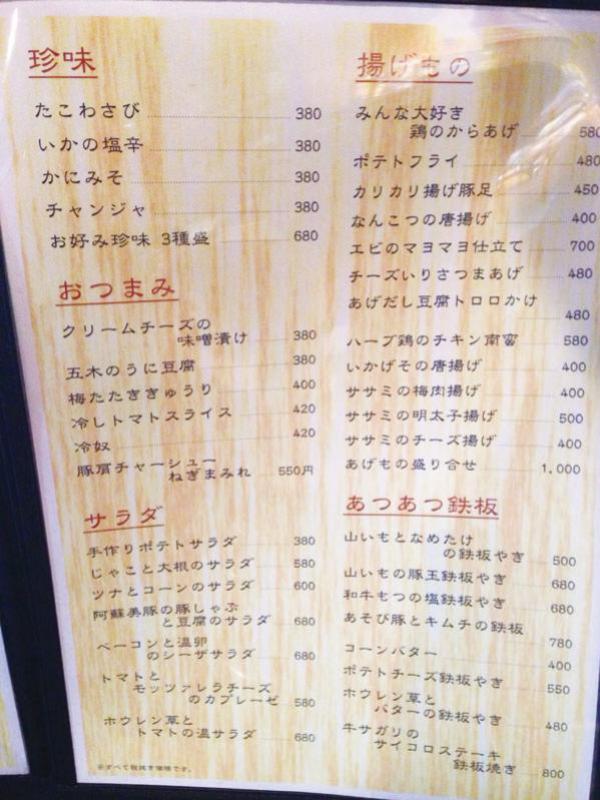 珍味
たこわさび 380
いかの塩辛 380
かにみそ 380
チャンジャ 380
お好み珍味 3種盛 680
おつまみ
クリームチーズの
味噌漬け 380
五木のうに豆腐 380
梅たたききゅうり 400
冷しトマトスライス 420
冷奴 420
豚肩チャーシュー
ねぎまみれ 550円
サラダ
手作りポテトサラダ 380
じゃこと大根のサラダ 580
ツナとコーンのサラダ 600
阿蘇美豚の豚しゃぶ
と豆腐のサラダ 680
ベーコンと温卵
のシーザサラダ 680
トマトと
モッツァレラチーズ
のカプレーゼ 580
ホウレン草と
トマトの温サラダ 680
※すべて税抜き価格です。
揚げもの
みんな大好き
鶏のからあげ 580
ポテトフライ 480
カリカリ揚げ豚足 450
なんこつの唐揚げ 400
エビのマヨマヨ仕立て 700
チーズいりさつまあげ 480
あげだし豆腐トロロかけ
480
ハーブ鶏のチキン南蛮 580
いかげその唐揚げ 400
ササミの梅肉揚げ 400
ササミの明太子揚げ 500
ササミのチーズ揚げ 400
あげもの盛り合せ 1,000
あつあつ鉄板
山いもとなめたけ
の鉄板やき 500
山いもの豚玉鉄板やき 680
和牛もつの塩鉄板やき 680
あそび豚とキムチの鉄板
780
コーンバター 400
ポテトチーズ鉄板やき 550
ホウレン草と
バターの鉄板やき 480
牛サガリの
サイコロステーキ
鉄板焼き 800